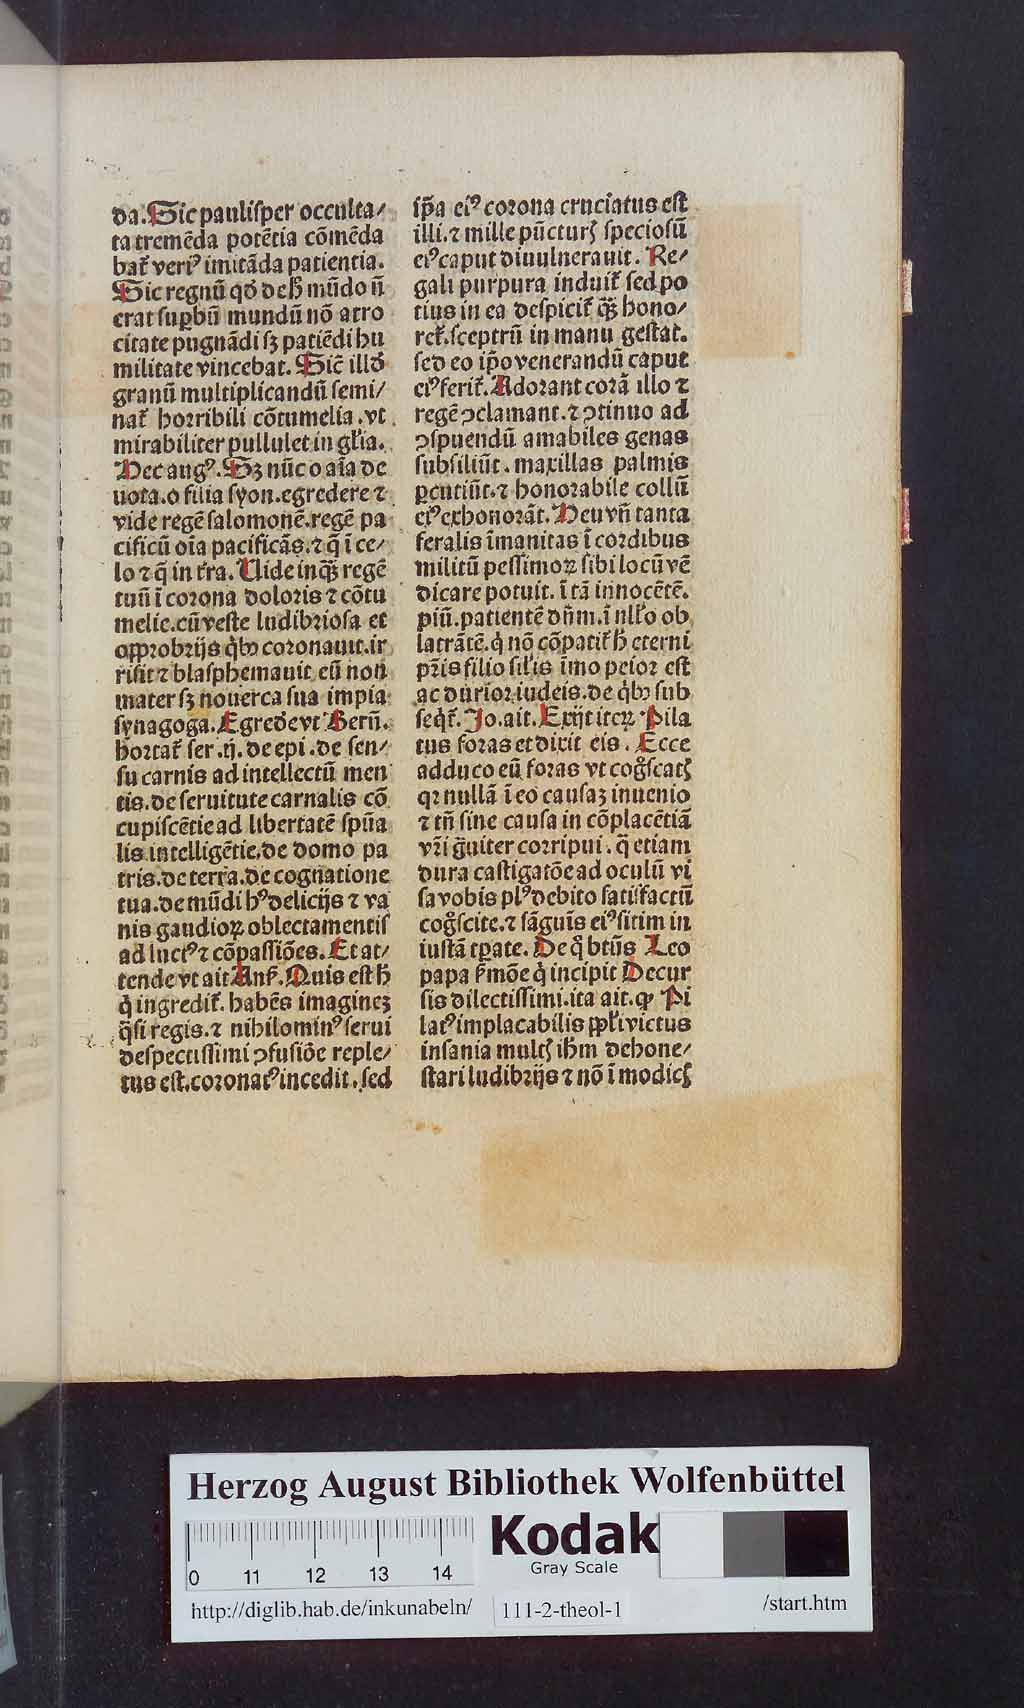 da. Sic paulisper occulta/
ta tremēda potētia cōmēda
bat᷑ veriꝰ imitāda patientia.
Sic regnū qd̛ de hͦ mūdo ñ
erat suꝑbū mundū nō atro
citate pugnādi sꝫ patiēdi hu
militate vincebat. Sic̄ illd̛
granū multiplicandū semi/
nat᷑ horribili cōtumelia. vt
mirabiliter pullulet in gl̛ia.
Hec augꝰ. Sꝫ nūc o aīa de
uota. o filia syon. egredere ⁊
vide regē salomonē. regē pa
cificū oīa pacificās. ⁊ q̄ ī ce/
lo ⁊ q̄ in t̄ra. Uide inqͣꝫ regē
tuū ī corona doloris ⁊ cōtu
melie. cū veste ludibriosa et
opprobrijs qͥbꝰ coronauit. ir
risit ⁊ blasphemauit eū non
mater sꝫ nouerca sua impia
synagoga. Egrede vt Berñ.
hortat᷑ ser. ij. de epi. de sen/
su carnis ad intellectū men
tis. de seruitute carnalis cō
cupiscētie ad libertatē spūa
lis intelligētie. de domo pa
tris. de terra. de cognatione
tua. de mūdi hꝰ delicijs ⁊ va
nis gaudioꝝ oblectamentis
ad luctꝰ ⁊ cōpassiōes. Et at/
tende vt ait Ans̄. Quis est hͦ
qͥ ingredit᷑. habēs imaginez
qͣsi regis. ⁊ nihilominꝰ serui
despectissimi ꝯfusiōe reple/
tus est. coronatꝰ incedit. sed
ip̄a eiꝰ corona cruciatus est
illi. ⁊ mille pūcturꝭ speciosū
eiꝰ caput diuulnerauit. Re/
gali purpura induit᷑ sed po
tius in ea despicit᷑ qͣꝫ hono/
ret᷑. sceptrū in manu gestat.
sed eo ip̄o venerandū caput
eiꝰ ferit᷑. Adorant corā illo ⁊
regē ꝯclamant. ⁊ ꝯtinuo ad
ꝯspuendū amabiles genas
subsiliūt. maxillas palmis
ꝑcutiūt. ⁊ honorabile collū
eiꝰ exhonorāt. Heu vñ tanta
feralis īmanitas ī cordibus
militū pessimoꝝ sibi locū vē
dicare potuit. ī tā innocētē.
piū. patientē dn̄m. ī nll̛o ob
latrātē. qͥ nō cōpatit᷑ hͦ eterni
pr̄is filio sil̛is īmo peior est
ac durior iudeis. de qͥbꝰ sub
seqͥt᷑. Jo. ait. Exijt iteꝝ Pila
tus foras et dixit eis. Ecce
adduco eū foras vt cogͦscatꝭ
qꝛ nullā ī eo causaꝫ inuenio
⁊ tñ sine causa in cōplacētiā
vr̄i gͣuiter corripui. q̄ etiam
dura castigatōe ad oculū vi
sa vobis plꝰ debito satisfactū
cogͦscite. ⁊ sāguīs eiꝰ sitim in
iustā tꝑate. De qͦ btūs Leo
papa s̄mōe qͥ incipit Decur
sis dilectissimi. ita ait. ꝙ Pi
latꝰ implacabilis ppl̛i victus
insania multꝭ ih̄m dehone/
stari ludibrijs ⁊ nō īmodicꝭ
Herzog August Bibliothek Wolfenbüttel
Kodak
Gray Scale
0 11 12 13 14
http://diglib.hab.de/inkunabeln/ 111-2-theol-1 /start.htm